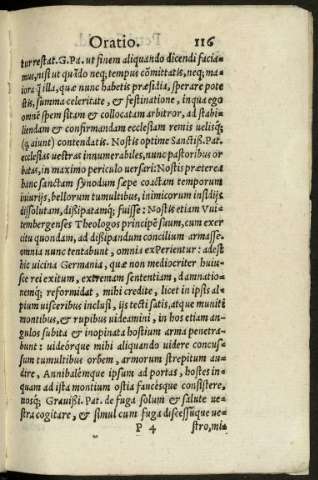 Oratio. 116
tur restat. G. Pa. ut finem aliquando dicendi facia-
mus, nisi ut quādo neq; tempus cōmittatis, neq; ma-
iora q̃ illa, quæ nunc habetis præsidia, sperare pote
stis, summa celeritate, & festinatione, in qua ego
omnē spem sitam & collocatam arbitror, ad stabi-
liendam & confirmandam ecclesiam remis uelisq́;
(q̃ aiunt) contendatis. Nostis optime Sanctiß. Pat.
ecclesias uestras innumerabiles, nunc pastoribus or
batas, in maximo periculo uersari: Nostis præterea
hanc sanctam synodum sæpe coactam temporum
iniurijs, bellorum tumultibus, inimicorum insidijs
dissolutam, dißipatamq́; fuisse: Nostis etiam Vui-
tembergenses Theologos principē suum, cum exer
citu quondam, ad dißipandum concilium armasse.
omnia nunc tentabunt, omnia exPerientur: adest
hic uicina Germania, quæ non mediocriter huius-
sce rei exitum, extremam sententiam, damnatio-
nemq́; reformidat, mihi credite, licet in ipsis al-
pium uisceribus inclusi, ijs tecti satis, atque muniti
montibus, & rupibus uideamini, in hos etiam an-
gulos subita & inopinata hostium arma penetra-
bunt: uideórque mihi aliquando uidere concus-
sum tumultibus orbem, armorum strepitum au-
dire, Annibalēmque ipsum ad portas, hostes in-
quam ad ista montium ostia fauceśque consistere,
nosq́; Grauißi. Pat. de fuga solum & salute ue-
stra cogitare, & simul cum fuga discessúque ue-
P 4 stro, mi-